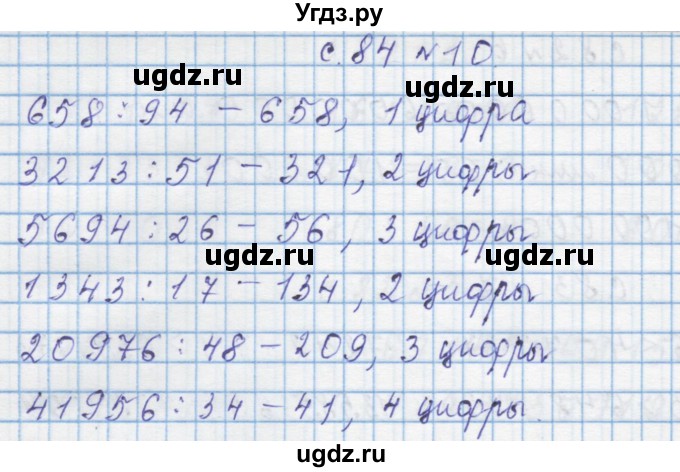 Угдз.ру
с. 84 №10
ugdz.ru ugdz.ru
658 : 94 – 658, 1 цифра
3213 : 51 – 321, 2 цифры
ugdz.ru ugdz.ru
5694 : 26 – 56, 3 цифры
ugdz.ru ugdz.ru
1343 : 17 – 134, 2 цифры
20976 : 48 – 209, 3 цифры
ugdz.ru ugdz.ru
41956 : 34 – 41, 4 цифры.
ugdz.ru